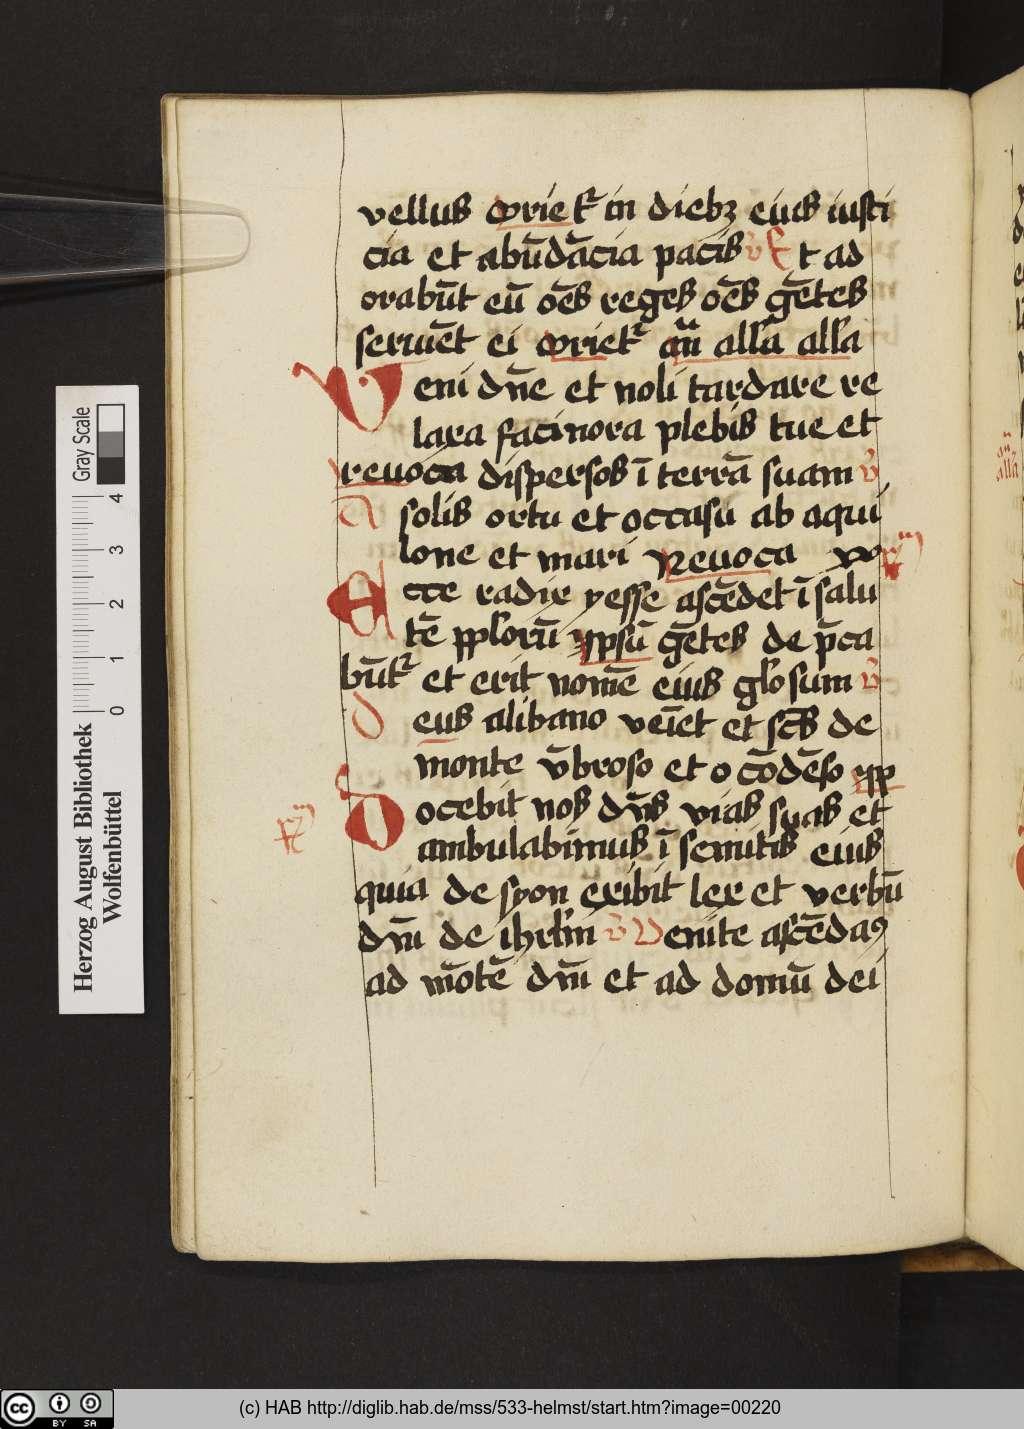 vellus Orietᷣ in diebꝫ eius iusti
cia et abūdācia pacis v̄ Et ad
orabūt eū oēs reges oēs gētes
seruiēt ei Orietᷣ an̄ all'a all'a
Veni dn̄e et noli tardare re
laxa facinora plebis tue et
reuoca dispersos ī terrā suam v̄
A solis ortu et occasu ab aqui
lone et mari Reuoca
Ecce radix yesse ascēdet ī salu
tē pp̄lorū ypsū gētes de p̄ca
būtᷣ et erit nomē eius gl'osum v̄
deus alibano veīet et sc̄s de
monte v̄broso et o cōdēso
Docebit nos dn̄s vias suas et
ambulabimus ī semitis eius
quia de syon exibit lex et verbū
dn̄i de ihrl'm v̄ Venite ascēdaꝰ
ad mōtē dn̄i et ad domū dei
Herzog August Bibliothek
Wolfenbüttel
Gray Scale
0 1 2 3 4
cc BY SA
(c) HAB http://diglib.hab.de/mss/533-helmst/start.htm?image=00220